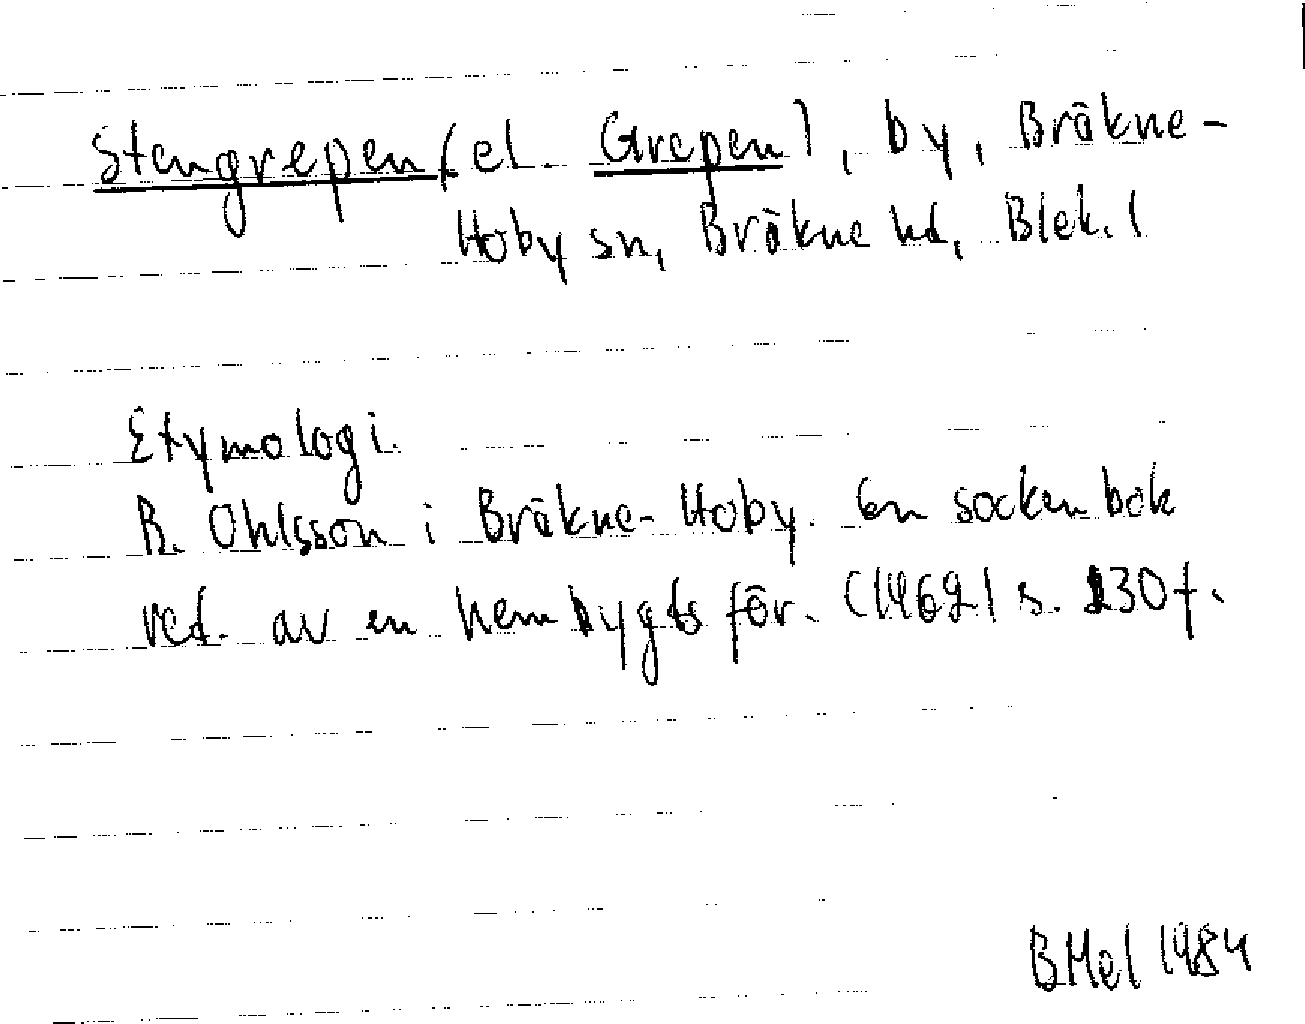 Stengrepen (el. Grepen), by, Bräkne-
Hoby sn, Bräkne hd, Blek. l
Etymologi.
B. Ohlsson i Bräkne-Hoby. En sockenbok
red. av en hembygdsför. (1962) s. 230 f.
BMel 1984